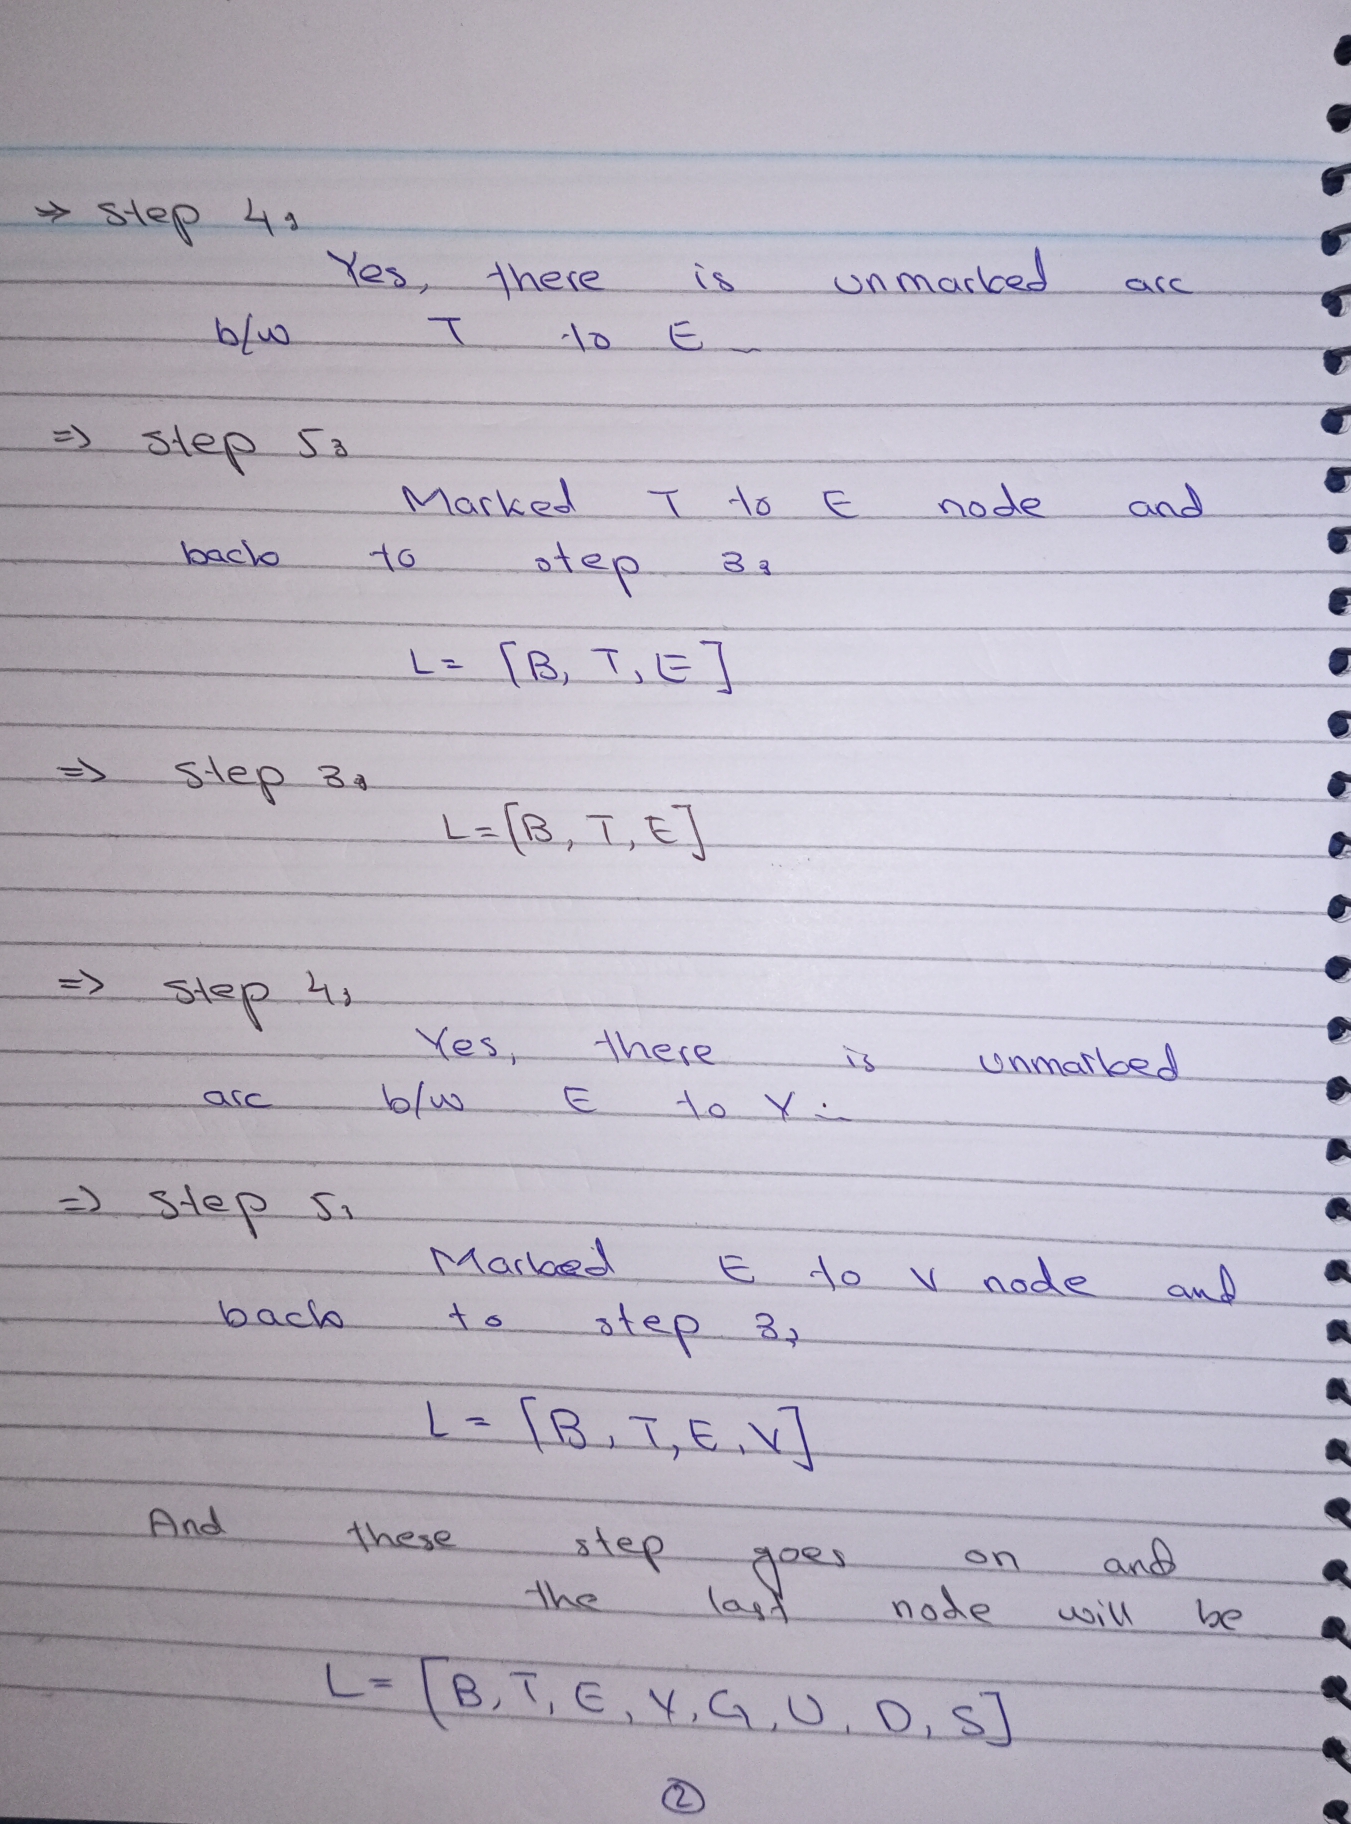 ⇒ step 4:
Yes, there is unmarked arc
b/w T to E
⇒ step 5:
Marked T to E node and
back to step 3:
L= [B, T, E]
⇒ step 3:
L=[B, T, E]
⇒ step 4:
Yes, there is unmarked
arc b/w E to V:
⇒ step 5:
Marked E to V node and
back to step 3:
L = [B, T, E, V]
And these step goes on and
the last node will be
L= [B, T, E, V, G, U, D, S]
2